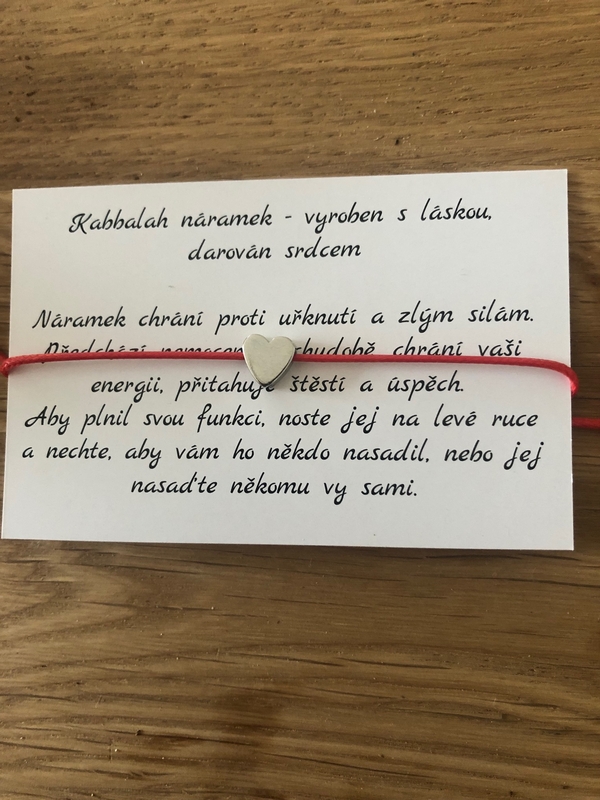 Kabbalah náramek - vyroben s láskou,
darován srdcem
Náramek chrání proti uřknutí a zlým silám.
Předchází chudobě chrání vaši
energii, přitahuje štěstí a úspěch.
Aby plnil svou funkci, noste jej na levé ruce
a nechte, aby vám ho někdo nasadil, nebo jej
nasaďte někomu vy sami.